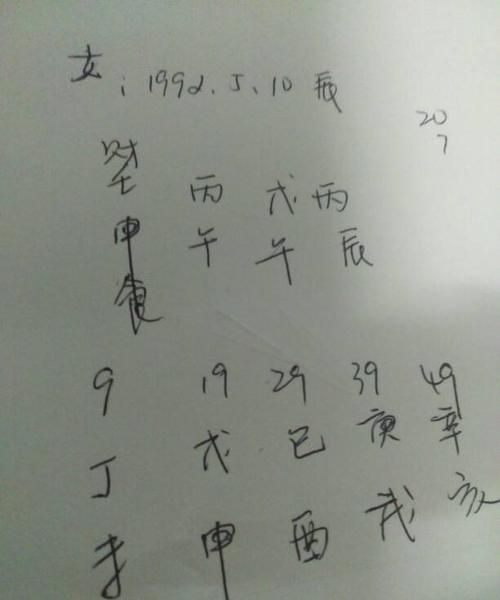 女：1992、5、10 辰
20
7
财
壬 丙 戊 丙
申 午 午 辰
食
9 19 29 39 49
丁 戊 己 庚 辛
未 申 酉 戌 亥